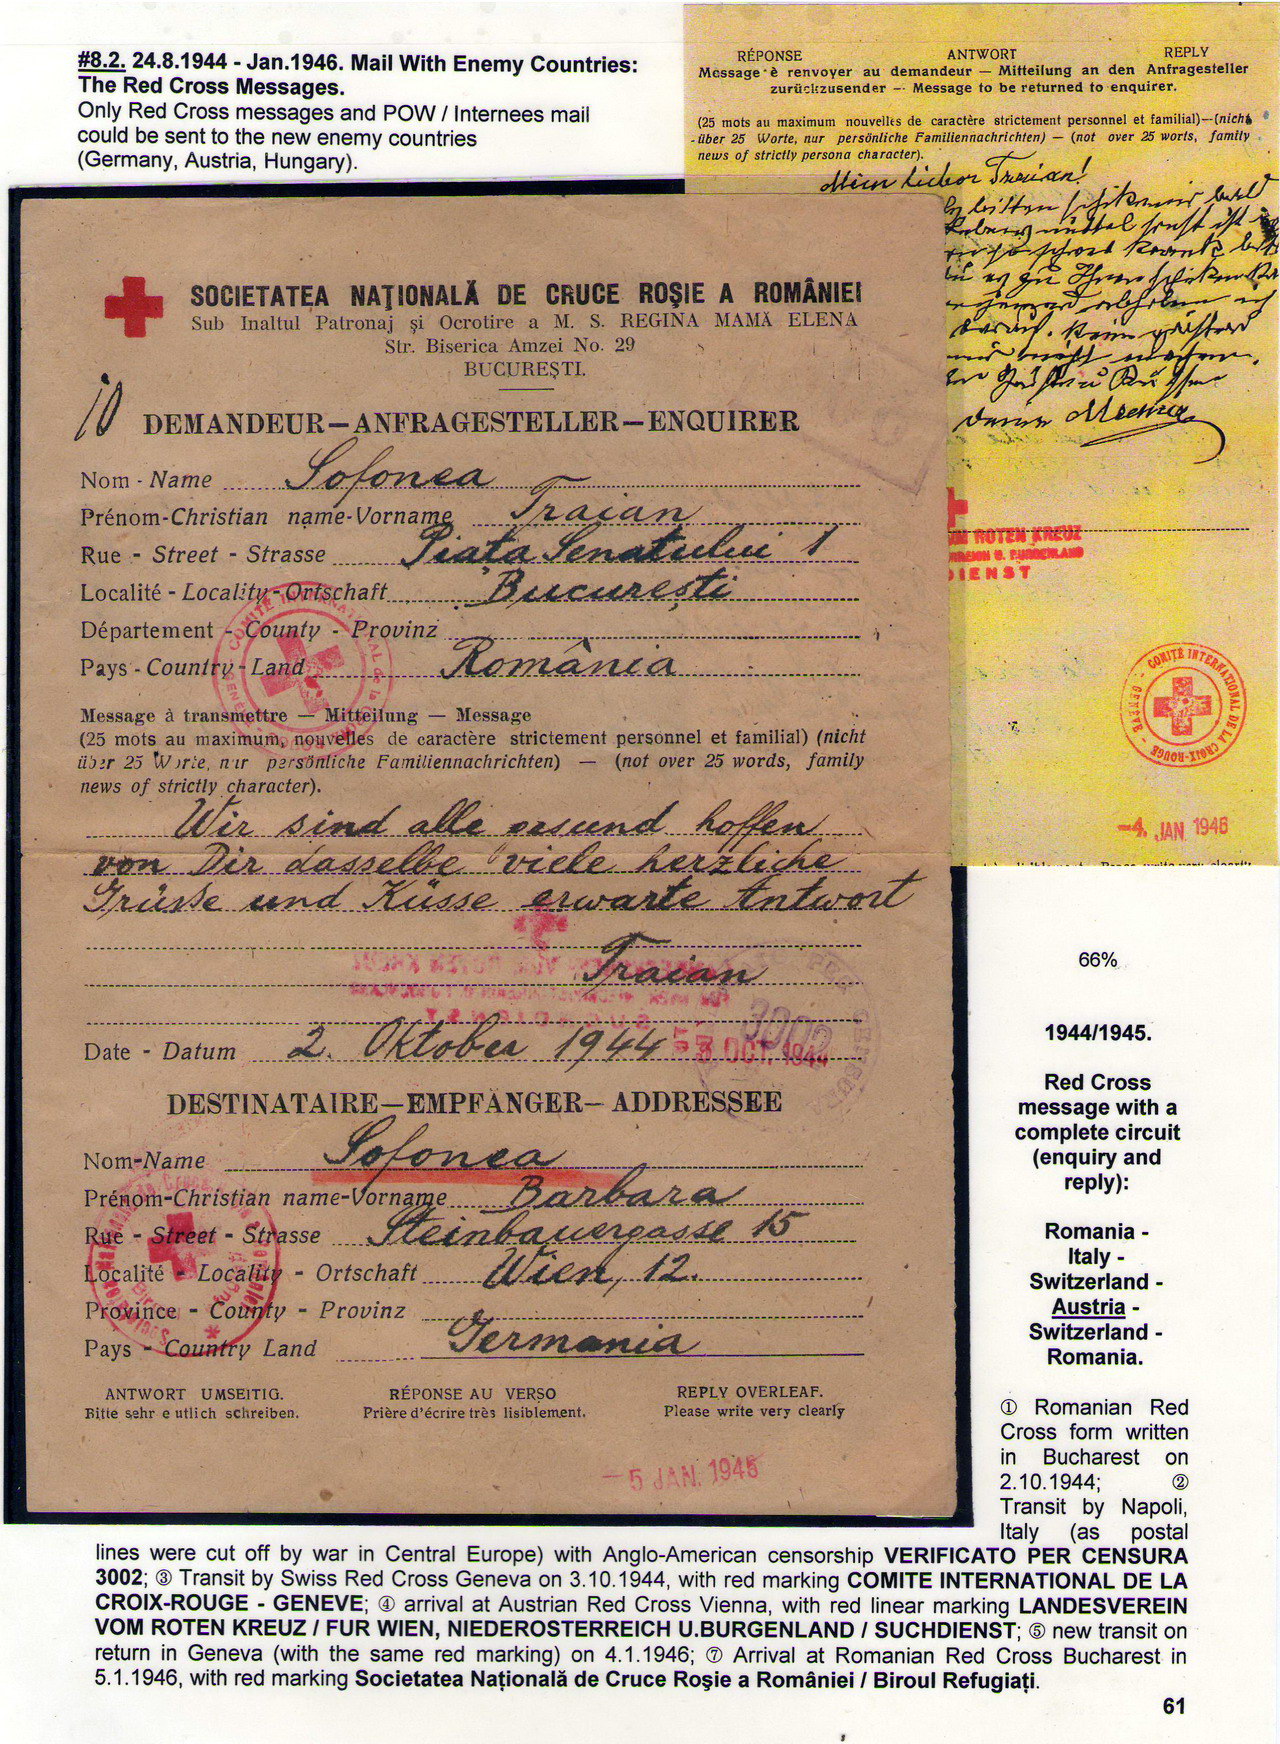 #8.2. 24.8.1944 - Jan.1946. Mail With Enemy Countries:
The Red Cross Messages.
Only Red Cross messages and POW / Internees mail
could be sent to the new enemy countries
(Germany, Austria, Hungary).
RÉPONSE ANTWORT REPLY
Message è renvoyer au demandeur — Mitteilung an den Anfragesteller
zurückzusender — Message to be returned to enquirer.
(25 mots au maximum nouvelles de caractère strictement personnel et familial)—(nicht
über 25 Worte, nur persönliche Familiennachrichten) — (not over 25 worts, family
news of strictly persona character).
Mein lieber Traian!
ROTEN KREUZ
U. BURGENLAND
DIENST
COMITÉ INTERNATIONAL DE LA CROIX-ROUGE - GENÈVE
-4. JAN 1946
SOCIETATEA NAŢIONALĂ DE CRUCE ROŞIE A ROMÂNIEI
Sub Inaltul Patronaj şi Ocrotire a M. S. REGINA MAMĂ ELENA
Str. Biserica Amzei No. 29
BUCUREŞTI.
10
DEMANDEUR—ANFRAGESTELLER—ENQUIRER
Nom - Name Sofonea
Prénom-Christian name-Vorname Traian
Rue - Street - Strasse Piaţa Senatului 1
Localité - Locality-Ortschaft Bucureşti
Département - County - Provinz
Pays - Country-Land România
COMITÉ INTERNATIONAL de la
Message à transmettre — Mitteilung — Message
(25 mots au maximum, nouvelles de caractère strictement personnel et familial) (nicht
über 25 Worte, nur persönliche Familiennachrichten) — (not over 25 words, family
news of strictly character).
Wir sind alle gesund hoffen
von Dir dasselbe viele herzliche
Grüsse und Küsse erwarte Antwort
Traian
3002
Date - Datum 2. Oktober 1944
OCT. 1944
DESTINATAIRE—EMPFÄNGER—ADDRESSEE
Nom-Name Sofonea
Prénom-Christian name-Vorname Barbara
Rue - Street - Strasse Steinbauergasse 15
Localité - Locality - Ortschaft Wien, 12.
Province - County - Provinz
Pays - Country Land Germania
ANTWORT UMSEITIG. RÉPONSE AU VERSO REPLY OVERLEAF.
Bitte sehr e utlich schreiben. Prière d'écrire très lisiblement. Please write very clearly
-5 JAN. 1946
66%
1944/1945.
Red Cross
message with a
complete circuit
(enquiry and
reply):
Romania -
Italy -
Switzerland -
Austria -
Switzerland -
Romania.
① Romanian Red
Cross form written
in Bucharest on
2.10.1944; ②
Transit by Napoli,
Italy (as postal
lines were cut off by war in Central Europe) with Anglo-American censorship VERIFICATO PER CENSURA
3002; ③ Transit by Swiss Red Cross Geneva on 3.10.1944, with red marking COMITE INTERNATIONAL DE LA
CROIX-ROUGE - GENEVE; ④ arrival at Austrian Red Cross Vienna, with red linear marking LANDESVEREIN
VOM ROTEN KREUZ / FUR WIEN, NIEDEROSTERREICH U.BURGENLAND / SUCHDIENST; ⑤ new transit on
return in Geneva (with the same red marking) on 4.1.1946; ⑦ Arrival at Romanian Red Cross Bucharest in
5.1.1946, with red marking Societatea Naţională de Cruce Roşie a României / Biroul Refugiaţi.
61